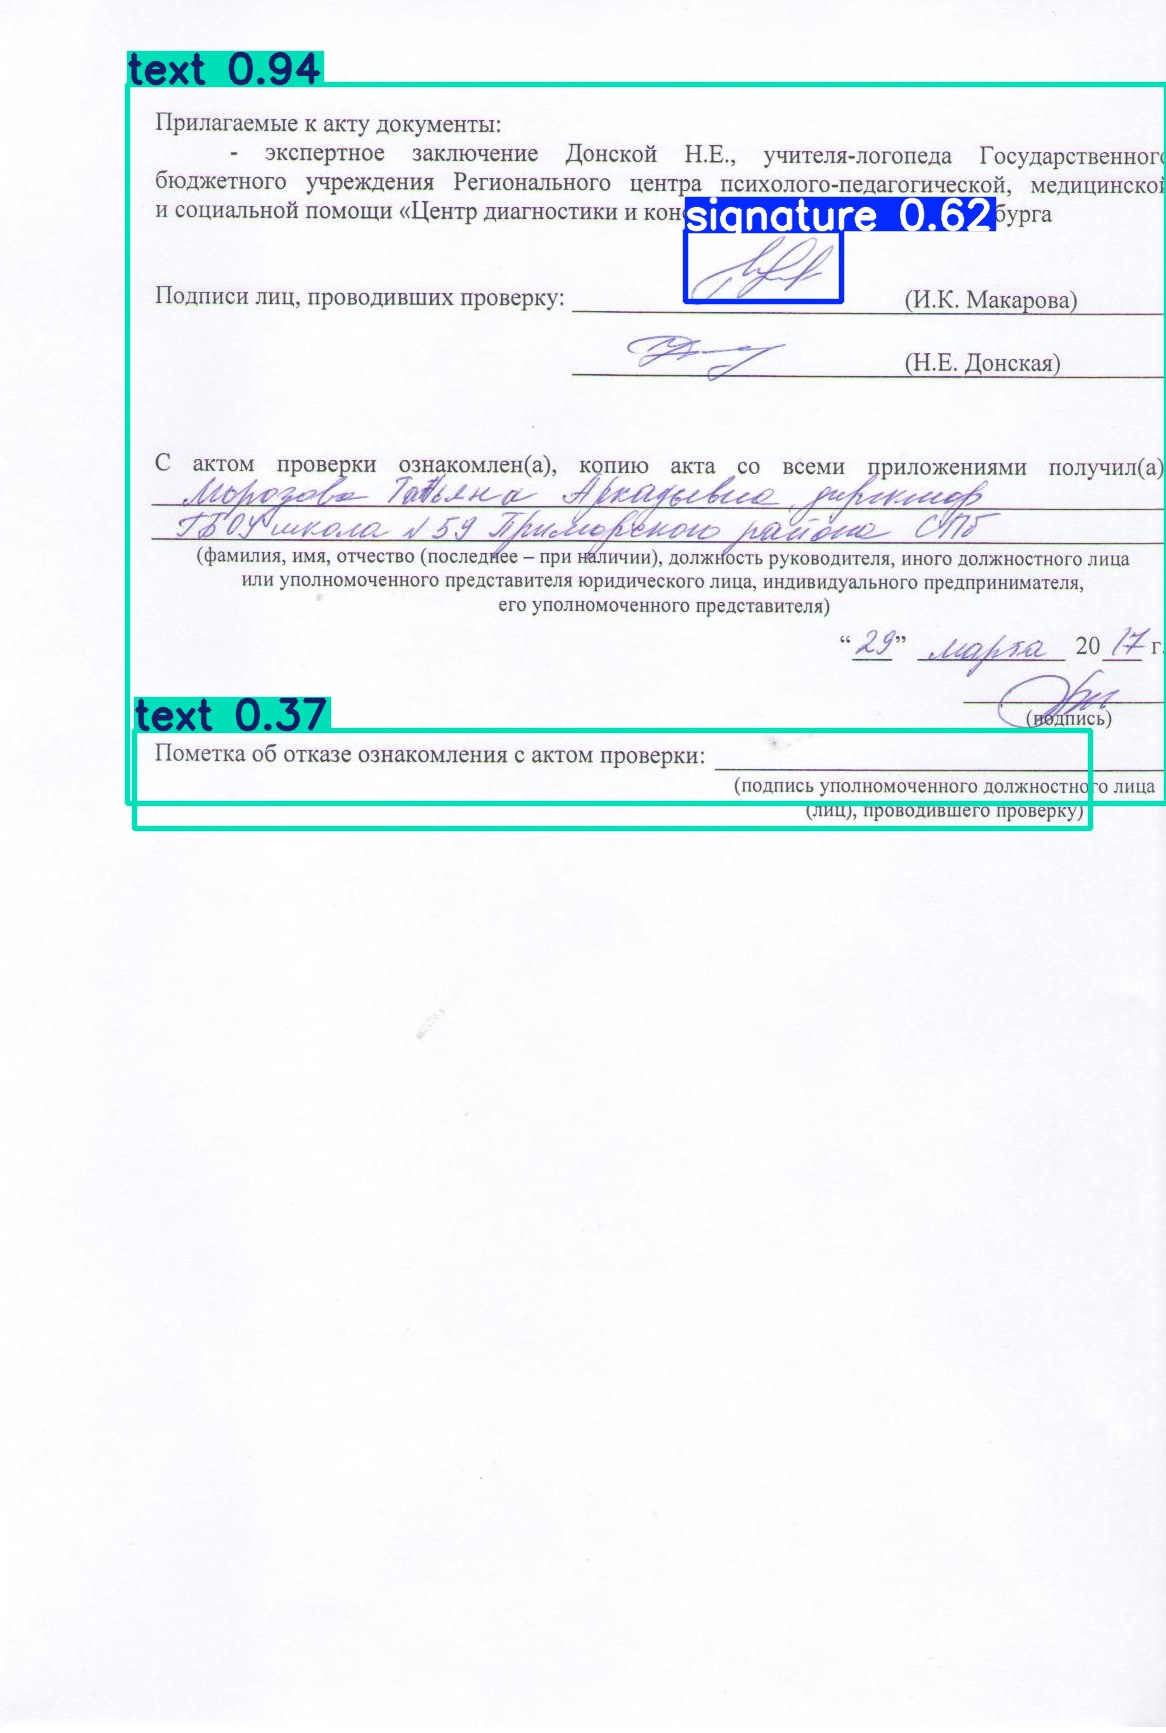 text 0.94
Прилагаемые к акту документы:
- экспертное заключение Донской Н.Е., учителя-логопеда Государственного
бюджетного учреждения Регионального центра психолого-педагогической, медицинской
и социальной помощи «Центр диагностики и кон
signature 0.62
бурга
Подписи лиц, проводивших проверку: (И.К. Макарова)
(Н.Е. Донская)
С актом проверки ознакомлен(а), копию акта со всеми приложениями получил(а)
Морозова Татьяна Аркадьевна, директор
ГБОУ школа №59 Приморского района СПб
(фамилия, имя, отчество (последнее – при наличии), должность руководителя, иного должностного лица
или уполномоченного представителя юридического лица, индивидуального предпринимателя,
его уполномоченного представителя)
“29” марта 2017 г.
(подпись)
text 0.37
Пометка об отказе ознакомления с актом проверки:
(подпись уполномоченного должностного лица
(лиц), проводившего проверку)